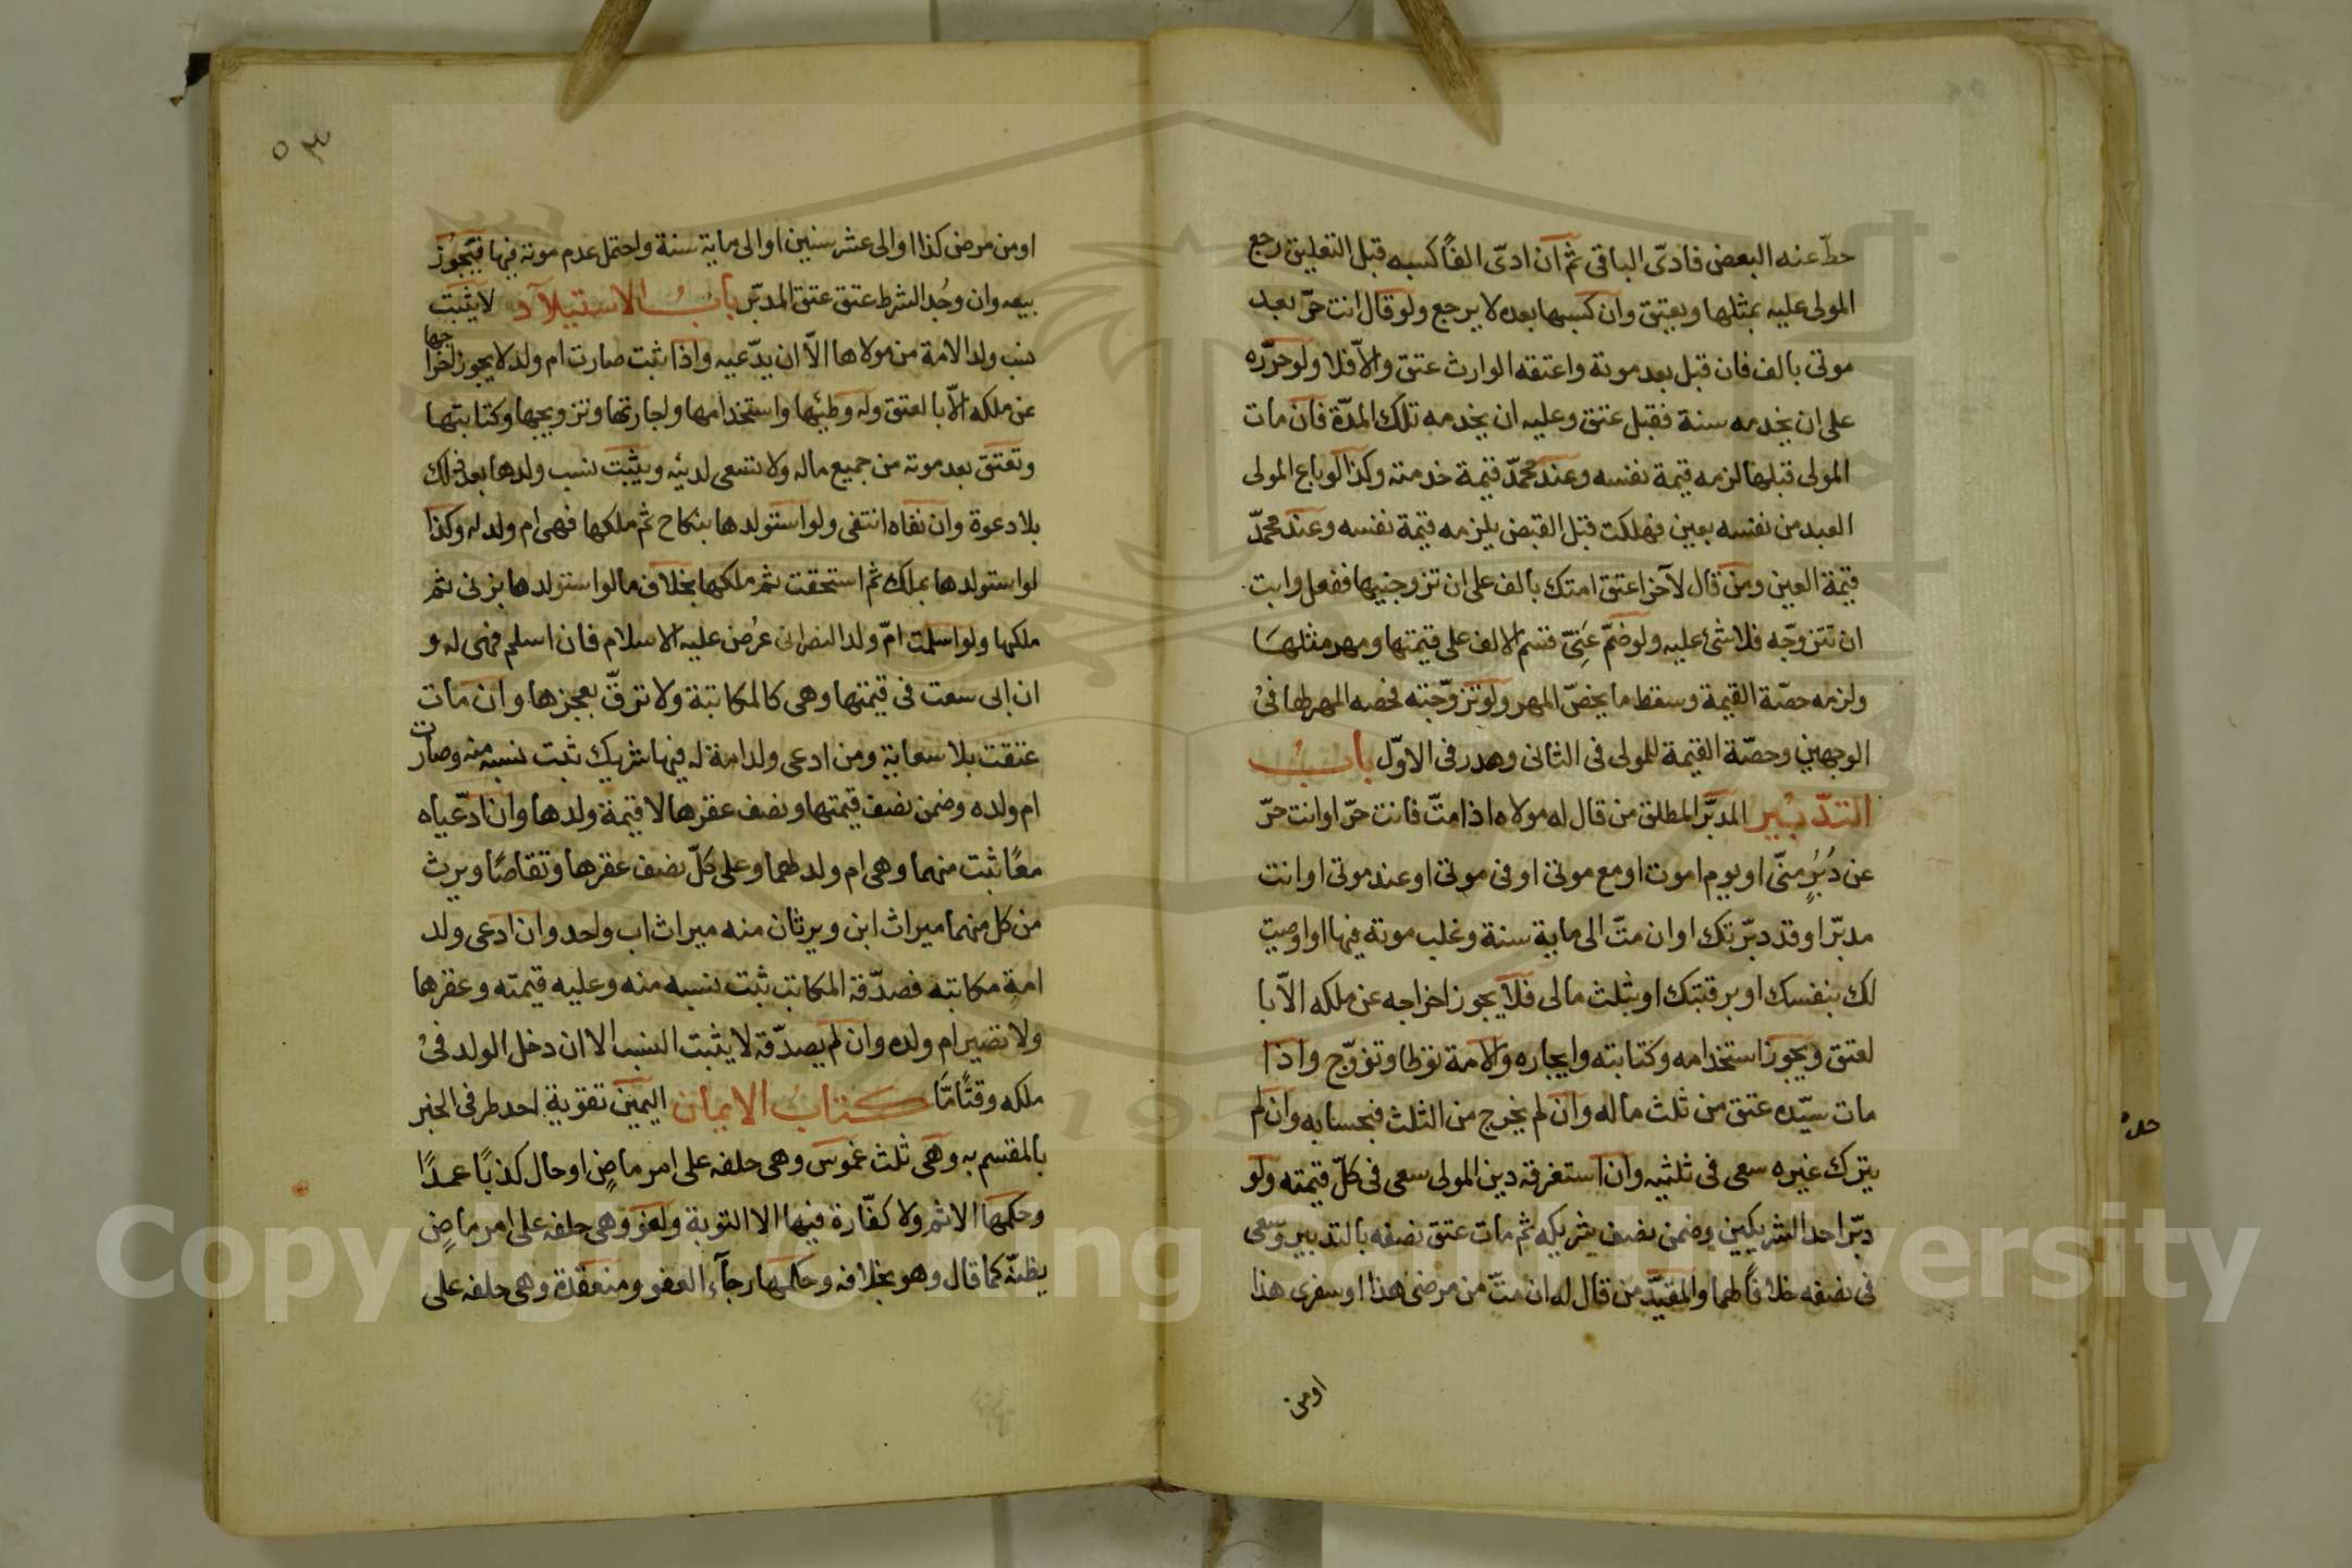 حطّ عنه البعض فادّى الباقى ثم ان ادّى الفًا كسبه قبل التعليق رجع
المولى عليه بمثلها ويعتق وان كسبها بعده لا يرجع ولو قال انت حرّ بعد
موتى بالف فان قبل بعد موته واعتقه الوارث عتق والّا فلا ولو حرّره
على ان يخدمه سنة فقبل عتق وعليه ان يخدمه تلك المدّة فان مات
المولى قبلها لزمه قيمة نفسه وعند محمّد قيمة خدمته وكذا لو باع المولى
العبد من نفسه بعين فهلكت قبل القبض يلزمه قيمة نفسه وعند محمّد
قيمة العين ومن قال لآخر اعتق امتك بالف على ان تزوجنيها ففعل وابت
ان تتزوجّه فلا شئ عليه ولو ضمّ عنّى قسم الالف على قيمتها ومهر مثلها
ولزمه حصّة القيمة وسقط ما يخصّ المهر ولو تزوّجته فحصه المهر لها فى
الوجهين وحصّة القيمة للمولى فى الثانى وهدر فى الاوّل باب
التدبير المدبّر المطلق من قال له مولاه اذا متّ فانت حرّ او انت حرّ
عن دُبُرٍ منّى او يوم اموت او مع موتى او فى موتى او عند موتى او انت
مدبّر او قد دبّرتك او ان متّ الى ماية سنة وغلب موته فيها او اوصيت
لك بنفسك او برقبتك او بثلث مالى فلا يجوز اخراجه عن ملكه الّا با
لعتق ويجوز استخدامه وكتابته وايجاره والامة توطا وتزوّج واذا
مات سيّده عتق من ثلث ماله وان لم يخرج من الثلث فبحسابه وان لم
يترك غيره سعى فى ثلثيه وان استغرقه دين المولى سعى فى كلّ قيمته ولو
دبّر احد الشريكين وضمن نصف شريكه ثم مات عتق نصفه بالتدبير وسعى
فى نصفه خلافًا لهما والمقيّد من قال له ان متّ من مرضى هذا او سفرى هذا
اومن
٥٣
او من مرض كذا او الى عشر سنين او الى ماية سنة واحتمل عدم موته فيها فيجوز
بيعه وان وجُد الشرط عتق عتق المدبّر باب الاستيلاد لا يثبت
نسب ولد الامة من مولاها الّا ان يدّعيه واذا ثبت صارت ام ولد لا يجوز اخراجها
عن ملكه الّا بالعتق وله وطئيها واستخدامها واجارتها وتزويجها وكتابتها
وتعتق بعد موته من جميع ماله ولا تسعى لدينه ويثبت نسب ولدها بعد ذلك
بلا دعوة وان نفاه انتفى ولو استولدها بنكاح ثم ملكها فهى ام ولد له وكذا
لو استولدها بملك ثم استحقت ثم ملكها بخلاف ما لو استولدها بزنى ثم
ملكها ولو اسلمت امّ ولد النصرانى عُرض عليه الاسلام فان اسلم فهى له و
ان ابى سعت فى قيمتها وهى كالمكاتبة ولا ترقّ بعجزها وان مات
عتقت بلا سعاية ومن ادعى ولد امة له فيها شريك ثبت نسبه منه وصارت
ام ولده وضمن نصف قيمتها ونصف عقرها لا قيمة ولدها وان ادّعياه
معًا ثبت منهما وهى ام ولد لهما وعلى كلّ نصف عقرها وتقاصّا ويرث
من كل منهما ميراث ابن ويرثان منه ميراث اب واحد وان ادعى ولد
امة مكاتبه فصدّقه المكاتب ثبت نسبه منه وعليه قيمته وعقرها
ولا تصير ام ولده وان لم يصدّقه لا يثبت النسب الا ان دخل الولد فى
ملكه وقتًا مّا كتاب الايمان اليمين تقوية احد طرفى الخبر
بالمقسم به وهى ثلث غموس وهى حلفه على امر ماضٍ او حال كذبًا عمدًا
وحكمها الاثم ولا كفّارة فيها الا التوبة ولغو وهى حلفه على امر ماضٍ
يظنّه كما قال وهو بخلافه وحكمها رجآء العفو ومنعقدة وهى حلفه على
Copyright © King Saud University
195